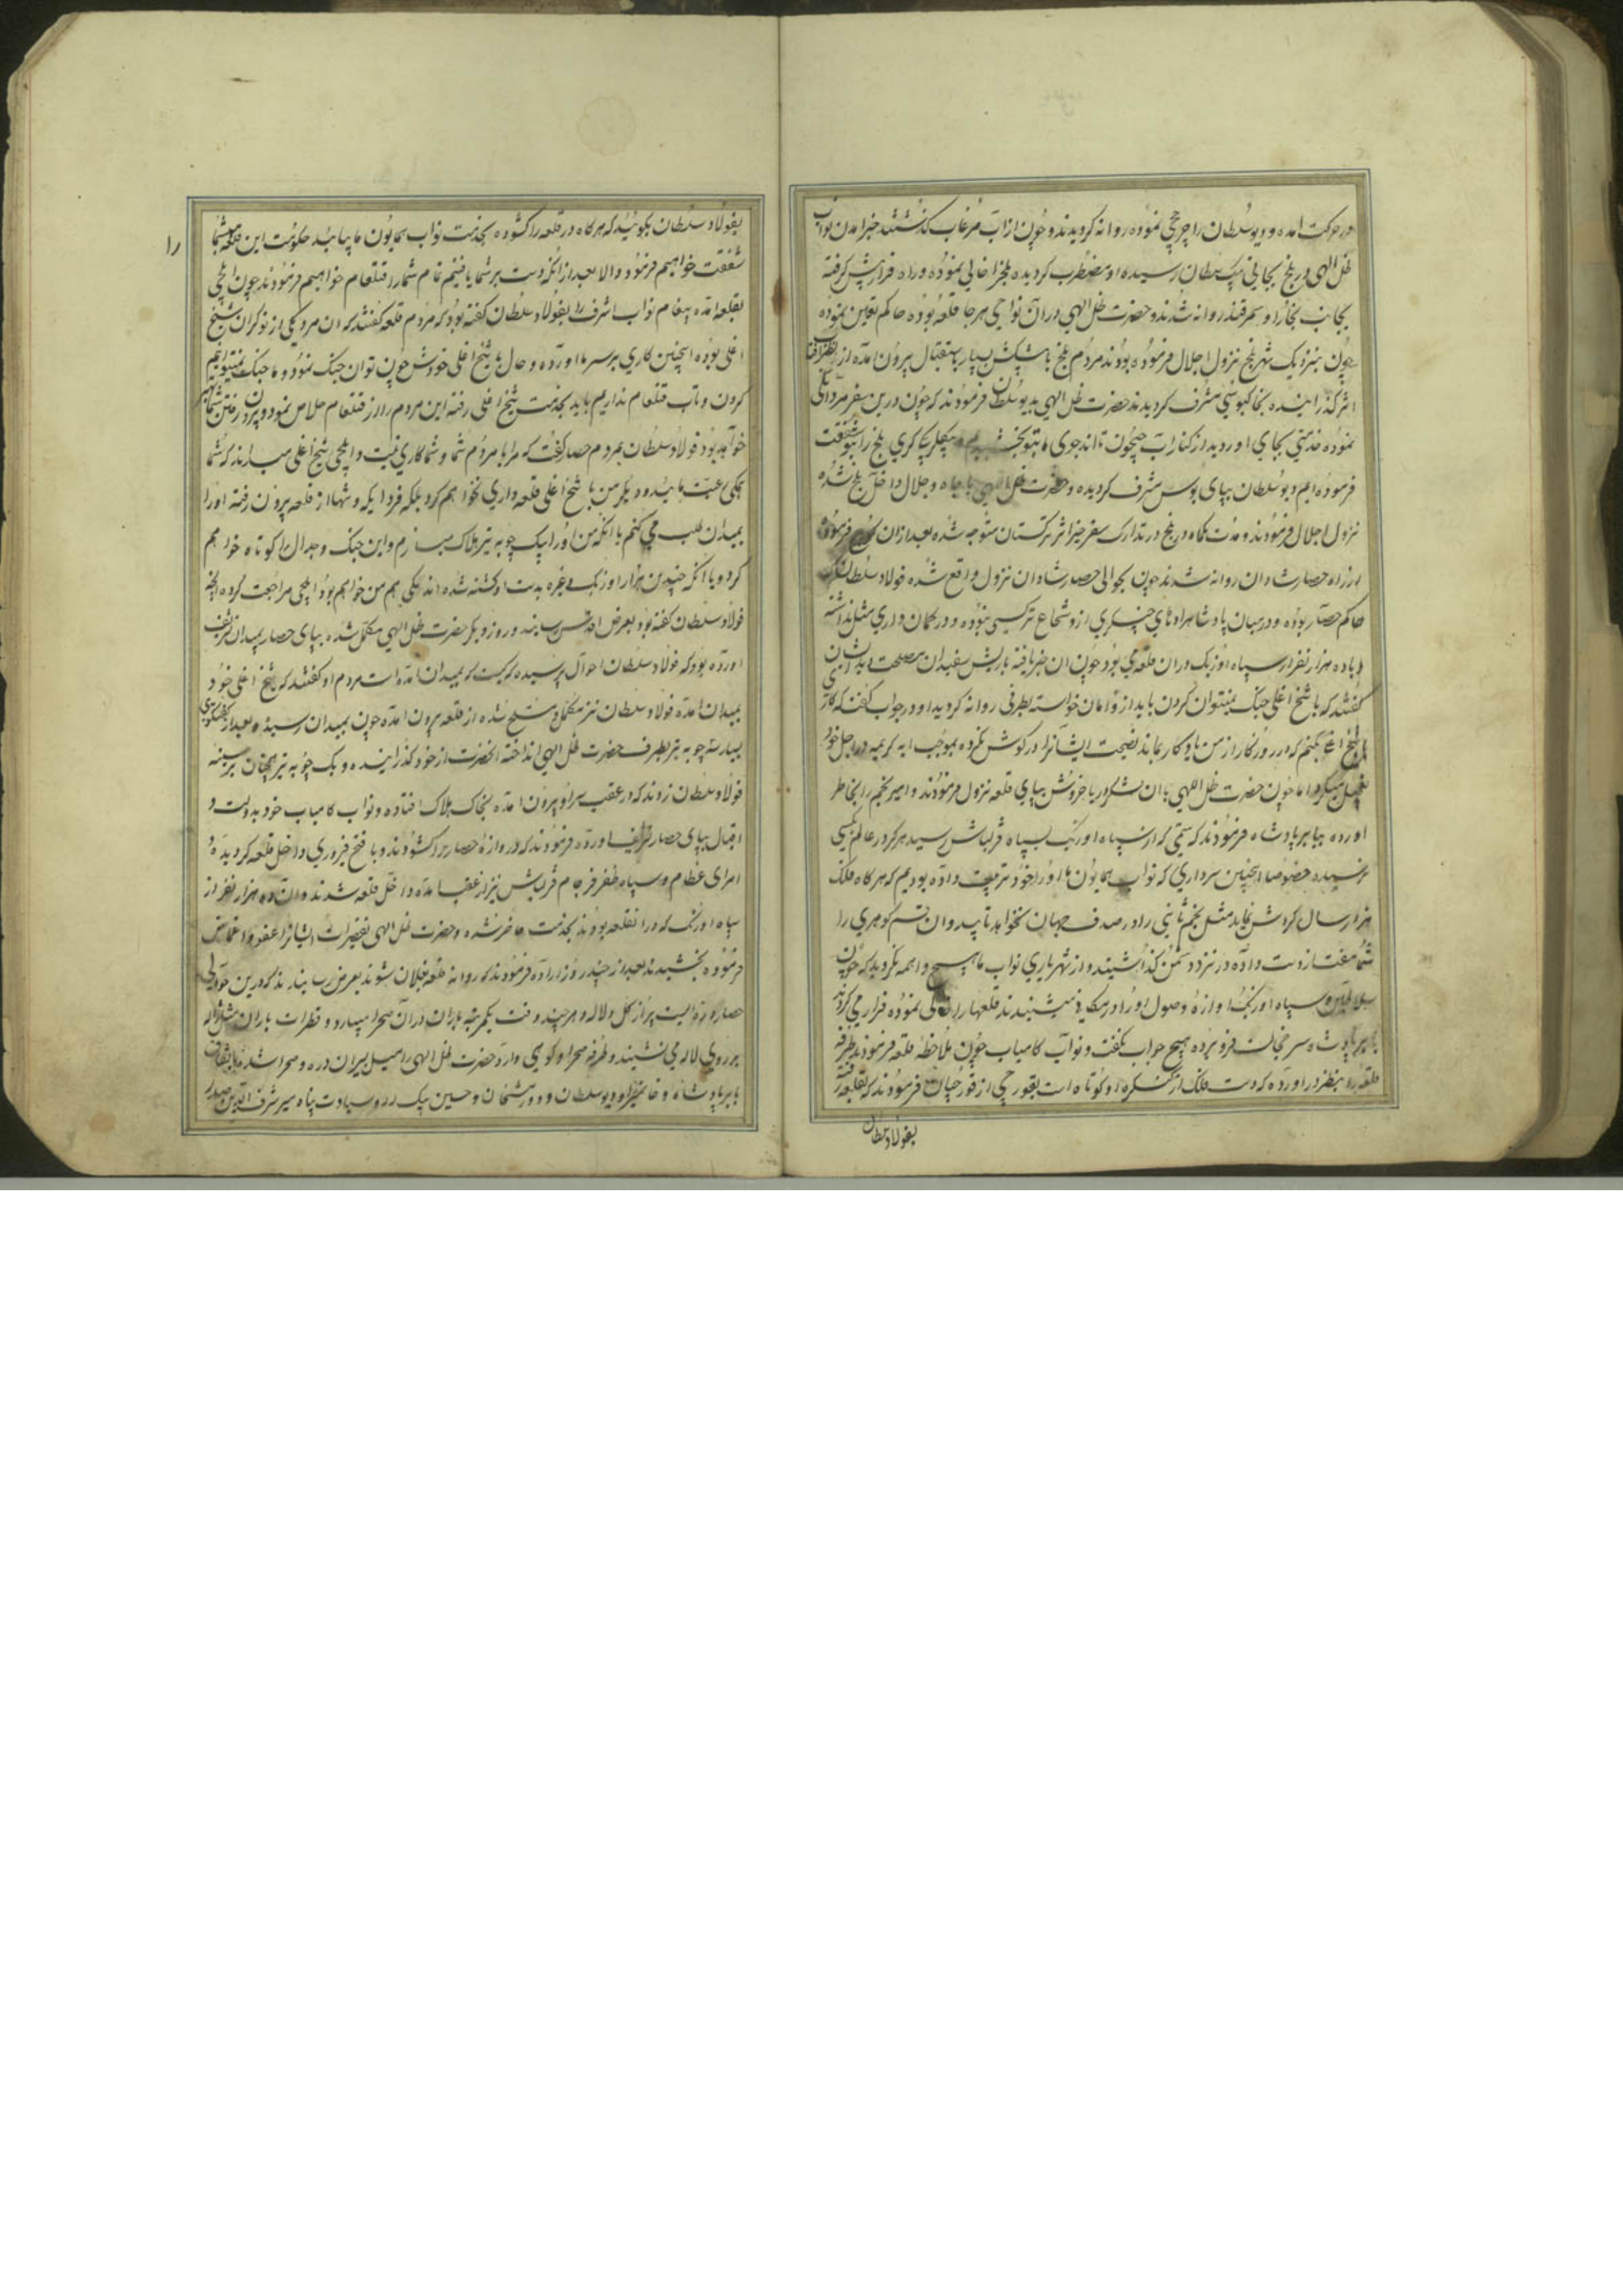 در حرکت آمده و دیو سلطان را چرخچی نموده روانه کردیدند و چون از آب مرغاب کذشتند خبر آمدن نواب
ظل الهی در بلخ بجانی بیک سلطان رسیده او مضطرب کردیده بلخ را خالی نموده و راه فرار پیش کرفته
بجانب بخارا و سمرقند روانه شدند و حضرت ظل الهی در آن نواحی هر جا قلعه بوده حاکم تعین نموده
چون بنزدیک شهر بلخ نزول اجلال فرموده بودند مردم بلخ با پیشکش بسیار باستقبال بیرون آمده از نظر
اثر کذرانیده بخاکبوسی مشرف کردیدند حضرت ظل الهی بدیو سلطان فرمودند که چون درین سفر مردانکی
نموده خدمتی بجای اوردید از کنار آب جیحون تا اندجوی بتو و بیکلربیکی کری بلخ را بتو شفقت
فرموده ایم دیو سلطان بپای بوس مشرف کردیده و حضرت ظل الهی با جاه و جلال داخل بلخ شده
نزول اجلال فرمودند و مدت یکماه در بلخ در تدارک سفر خیر اثر ترکستان متوجه شده بعد از آن کوچ فرموده
از راه حصار شادمان روانه شدند چون بحوالی حصار شادمان نزول واقع شده فولاد سلطان که
حاکم حصار بوده و در میان پادشاهزادهای چنکیزی ازو شجاع تر کسی نبوده و در کمان داری مثل نداشته
با ده هزار نفر از سپاه اوزبک در ان قلعه می بود چون ان خبر یافته با ریش سفیدان مصلحت دید ایشان
کفتند که با شیخ اغلی جنک نمیتوان کردن باید ازو امان خواسته بطرفی روانه کردید او در جواب کفت که کاری
با شیخ اغلی بکنم که در روزکار از من یادکار بماند نصیحت ایشانرا در کوش نکرده بموجب آیه کریمه در اجل خود
تعجیل میکرد اما چون حضرت ظل اللهی با ان لشکر دریا خروش بپای قلعه نزول فرمودند و امیر نجم را بخاطر
اورده ببابر پادشاه فرمودند که ستمی که از سپاه اوزبک بسپاه قزلباش رسید هرکز در عالم بکسی
نرسیده خصوصا اینچنین سرداری که نواب همایون ما او را خود تربیت داده بودیم که هر کاه فلک
هزار سال کردش نماید مثل نجم ثانی را در صدف جهان نخواهد تابید و ان قسم کوهری را
شما مفت از دست داده در نزد دشمن کذاشتید و از شهریاری نواب ما هیچ واهمه نکردید که چون
سلاطین و سپاه اوزبک آوازه وصول او را در مکانی میشنیدند قلعها را خالی نموده فرار می کردند
بابر پادشاه سر خجالت فرو برده هیچ جواب نکفت و نواب کامیاب چون ملاحظه قلعه فرمودند طرفه
قلعه را بنظر در اورده که دست فلک از کنکره او کوتاه است بقورچی از قورچیان فرمودند که بقلعه رفته
بفولاد سلطان
بفولاد سلطان بکوئید که هر کاه در قلعه را کشوده بخدمت نواب همایون ما بیائید حکومت این قلعه بشما
را
شفقت خواهیم فرمود و الا بعد از آنکه دست بر شما یافتیم تمام شما را قتلعام خواهیم فرمود ند چون ایلچی
بقلعه آمده پیغام نواب اشرف را بفولاد سلطان کفته بود که مردم قلعه کفتند که ان مرد یکی از نوکران شیخ
اغلی بوده اینچنین کاری بر سر ما اورده و حال با شیخ اغلی خودش چون توان جنک نمود و ما جنک نمیتوانیم
کردن و تاب قتلعام نداریم باید بخدمت شیخ اغلی رفته این مردم را از قتلعام خلاص نمود و
خواهد بود فولاد سلطان بمردم حصار کفت که مرا با مردم شما و شما کاری نیست و ایلچی شیخ اغلی میداند که شما
همکی رعیت مائید و دیکر من با شیخ اغلی قلعه داری نخواهم کرد بلکه فردا یکه و تنها از قلعه بیرون رفته او را
بمیدان طلب می کنم یا انکه من او را بیک چوبه تیر هلاک میسازم و این جنک و جدال را کوتاه خواهم
کرد و یا انکه چندین هزار اوزبک و غیره بدست او کشته شده اند یکی هم من خواهم بود ایلچی مراجعت کرده انچه
فولاد سلطان کفته بود بعرض اقدس رسانید و روز دیکر حضرت ظل الهی مکمل شده بپای حصار بمیدان تشریف
اورده بود که فولاد سلطان احوال پرسیده که کیست که بمیدان آمده است مردم او کفتند که شیخ اغلی خود
بمیدان آمده فولاد سلطان نیز مکمل و مسلح شده از قلعه بیرون آمده چون بمیدان رسید و بعد از کفتکوی
بسیار سه چوبه تیر بطرف حضرت ظل الهی انداخته انحضرت از خود کذرانیده و یک چوبه تیر چنان بر سینه
فولاد سلطان زدند که در عقب سر او بیرون آمده بخاک هلاک افتاده و نواب کامیاب خود بدولت و
اقبال بپای حصار تشریف اورده فرمودند که دروازه حصار را کشودند و با فتح و فیروزی داخل قلعه کردیده و
امرای عظام و سپاه ظفر فرجام قزلباش نیز از عقب آمده داخل قلعه شدند و ان ده هزار نفر از
سپاه اوزبک که در ان قلعه بودند بخدمت حاضر شده و حضرت ظل الهی تقصیرات ایشانرا عفو و اغماض
فرموده بخشیدند بعد از چند روز اراده فرمودند که روانه قلعه بغلان شوند بعرض رسانیدند که درین حوالی
حصار دره ایست پر از کل و لاله و هر چند وقت یکمرتبه باران در آن صحرا میبارد و قطرات باران مثل ژاله
بر روی لاله می نشیند و طرفه صحرا و کوهی دارد حضرت ظل الهی را میل سیران دره و صحرا شده باتفاق
بابر پادشاه و خان میرزا و دیو سلطان و دورمشخان و حسین بیک لله و سیادت پناه میر شرف الدین صدر